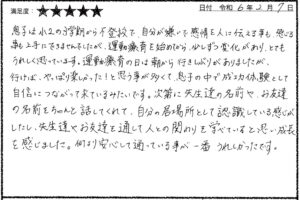 満足度：★★★★★
日付 令和 6年 2月 7日
息子は小2の3学期から不登校で、自分が嫌いで感情を人に伝える事も、怒る
事も上手にできませんでしたが、運動療育を始めてから、少しずつ変化があり、とても
うれしく思っています。運動療育の日は朝から行きしぶりがありましたが、
行けば、やっぱり楽しかった！と思う事が多くて、息子の中で成功体験として
自信につながって来ているみたいです。次第に先生達の名前や、お友達
の名前をちゃんと話してくれて、自分の居場所として認識している感じが
したし、先生達やお友達を通して人との関わりを学べていると思い成長
を感じました。何より安心して通っている事が一番うれしかったです。